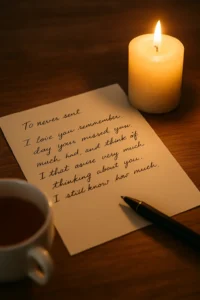 To never sent
I love you remember
day your missed you
much had, and think of
I that as very much
thinking about you
I still know how much.